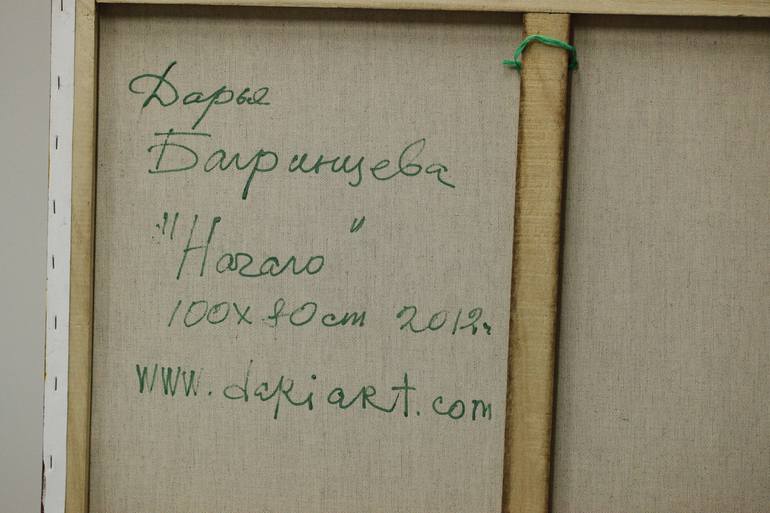 Дарья
Багринцева
"Начало"
100x80cm 2012г
www.dariart.com